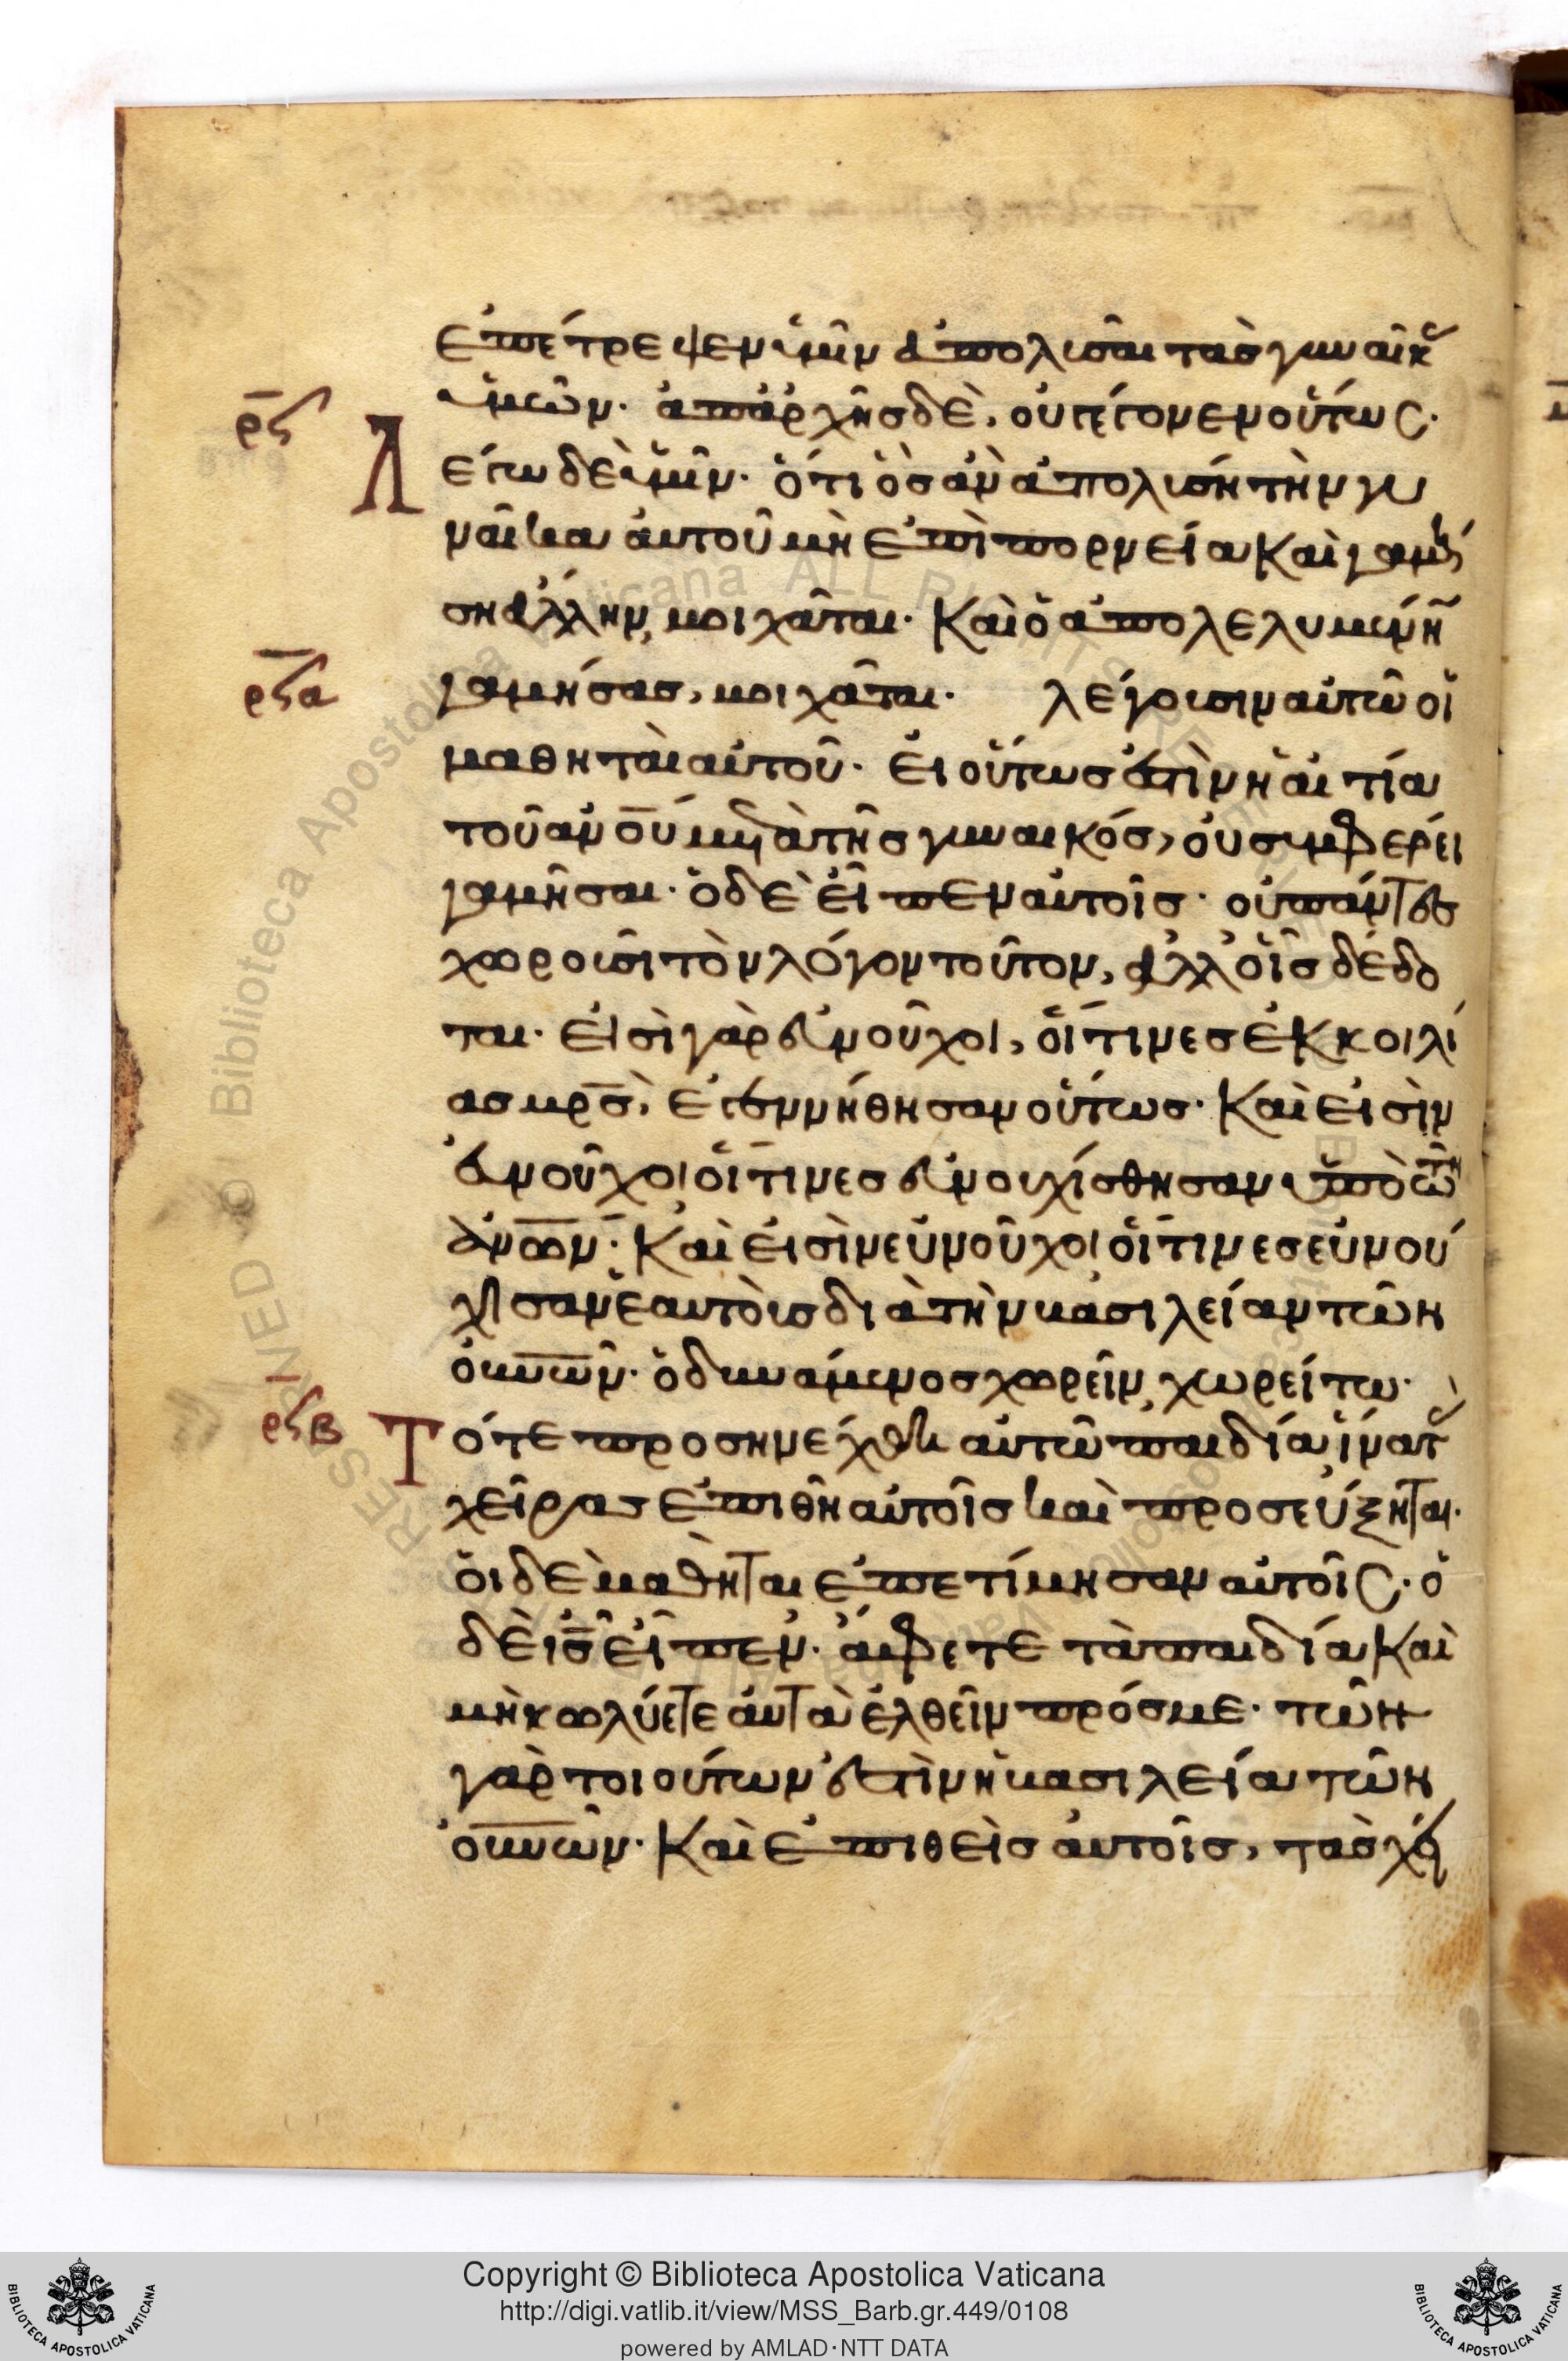 ἐπέτρεψεν ὑμῖν ἀπολῦσαι τὰς γυναῖκ
ὑμῶν· ἀπαρχῆς δὲ, οὐ γέγονεν οὕτως·
ρϟ
Λ
έγω δὲ ὑμῖν· ὅτι ὃς ἀν ἀπολύσῃ τὴν γυ
ναῖκα αὐτοῦ μὴ ἐπὶ πορνεία καὶ γαμή
ση ἄλλην, μοιχᾶται· καὶ ὁ ἀπολελυμένην
ρϟα
γαμήσας, μοιχᾶται· λέγουσιν αὐτῶ οἱ
μαθηταὶ αὐτοῦ· εἰ οὕτως ἐστὶν ἡ αἰτία
τοῦ ἀνου μετὰ τῆς γυναικός, οὐ συμφέρει
γαμῆσαι· ὁ δὲ εἶπεν αὐτοῖς· οὐ πάντες
χωροῦσι τὸν λόγον τοῦτον, ἀλλ οἷς δέδο
ται· εἰσὶ γὰρ εὐνοῦχοι, οἵτινες ἐκ κοιλί
ας μρς, ἐγεννήθησαν οὕτως· καὶ εἰσὶν
εὐνοῦχοι οἵτινες εὐνουχίσθησαν ὑπὸ τῶν
ἀνων· καὶ εἰσὶν εὐνοῦχοι οἵτινες εὐνού
χισαν ἑαυτοὺς διὰ τὴν βασιλείαν τῶν
οὐνῶν· ὁ δυνάμενος χωρεῖν, χωρείτω·
ρϟβ
Τ
ότε προσηνέχθη αὐτῶ παιδία, ἵνα τ
χεῖρας ἐπιθῆ αὐτοῖς καὶ προσεύξηται·
οἱ δὲ μαθηται ἐπετίμησαν αὐτοῖς· ὁ
δὲ ις εἶπεν· ἄφετε τὰ παιδία καὶ
μὴ κωλύετε αὐτα ἐλθεῖν πρός με· τῶν
γὰρ τοιούτων ἐστὶν ἡ βασιλεία τῶν
οὐνῶν· καὶ ἐπιθεὶς αὐτοῖς, τὰς χεῖ
Copyright © Biblioteca Apostolica Vaticana
http://digi.vatlib.it/view/MSS_Barb.gr.449/0108
powered by AMLAD·NTT DATA
BIBLIOTECA APOSTOLICA VATICANA
BIBLIOTECA APOSTOLICA VATICANA